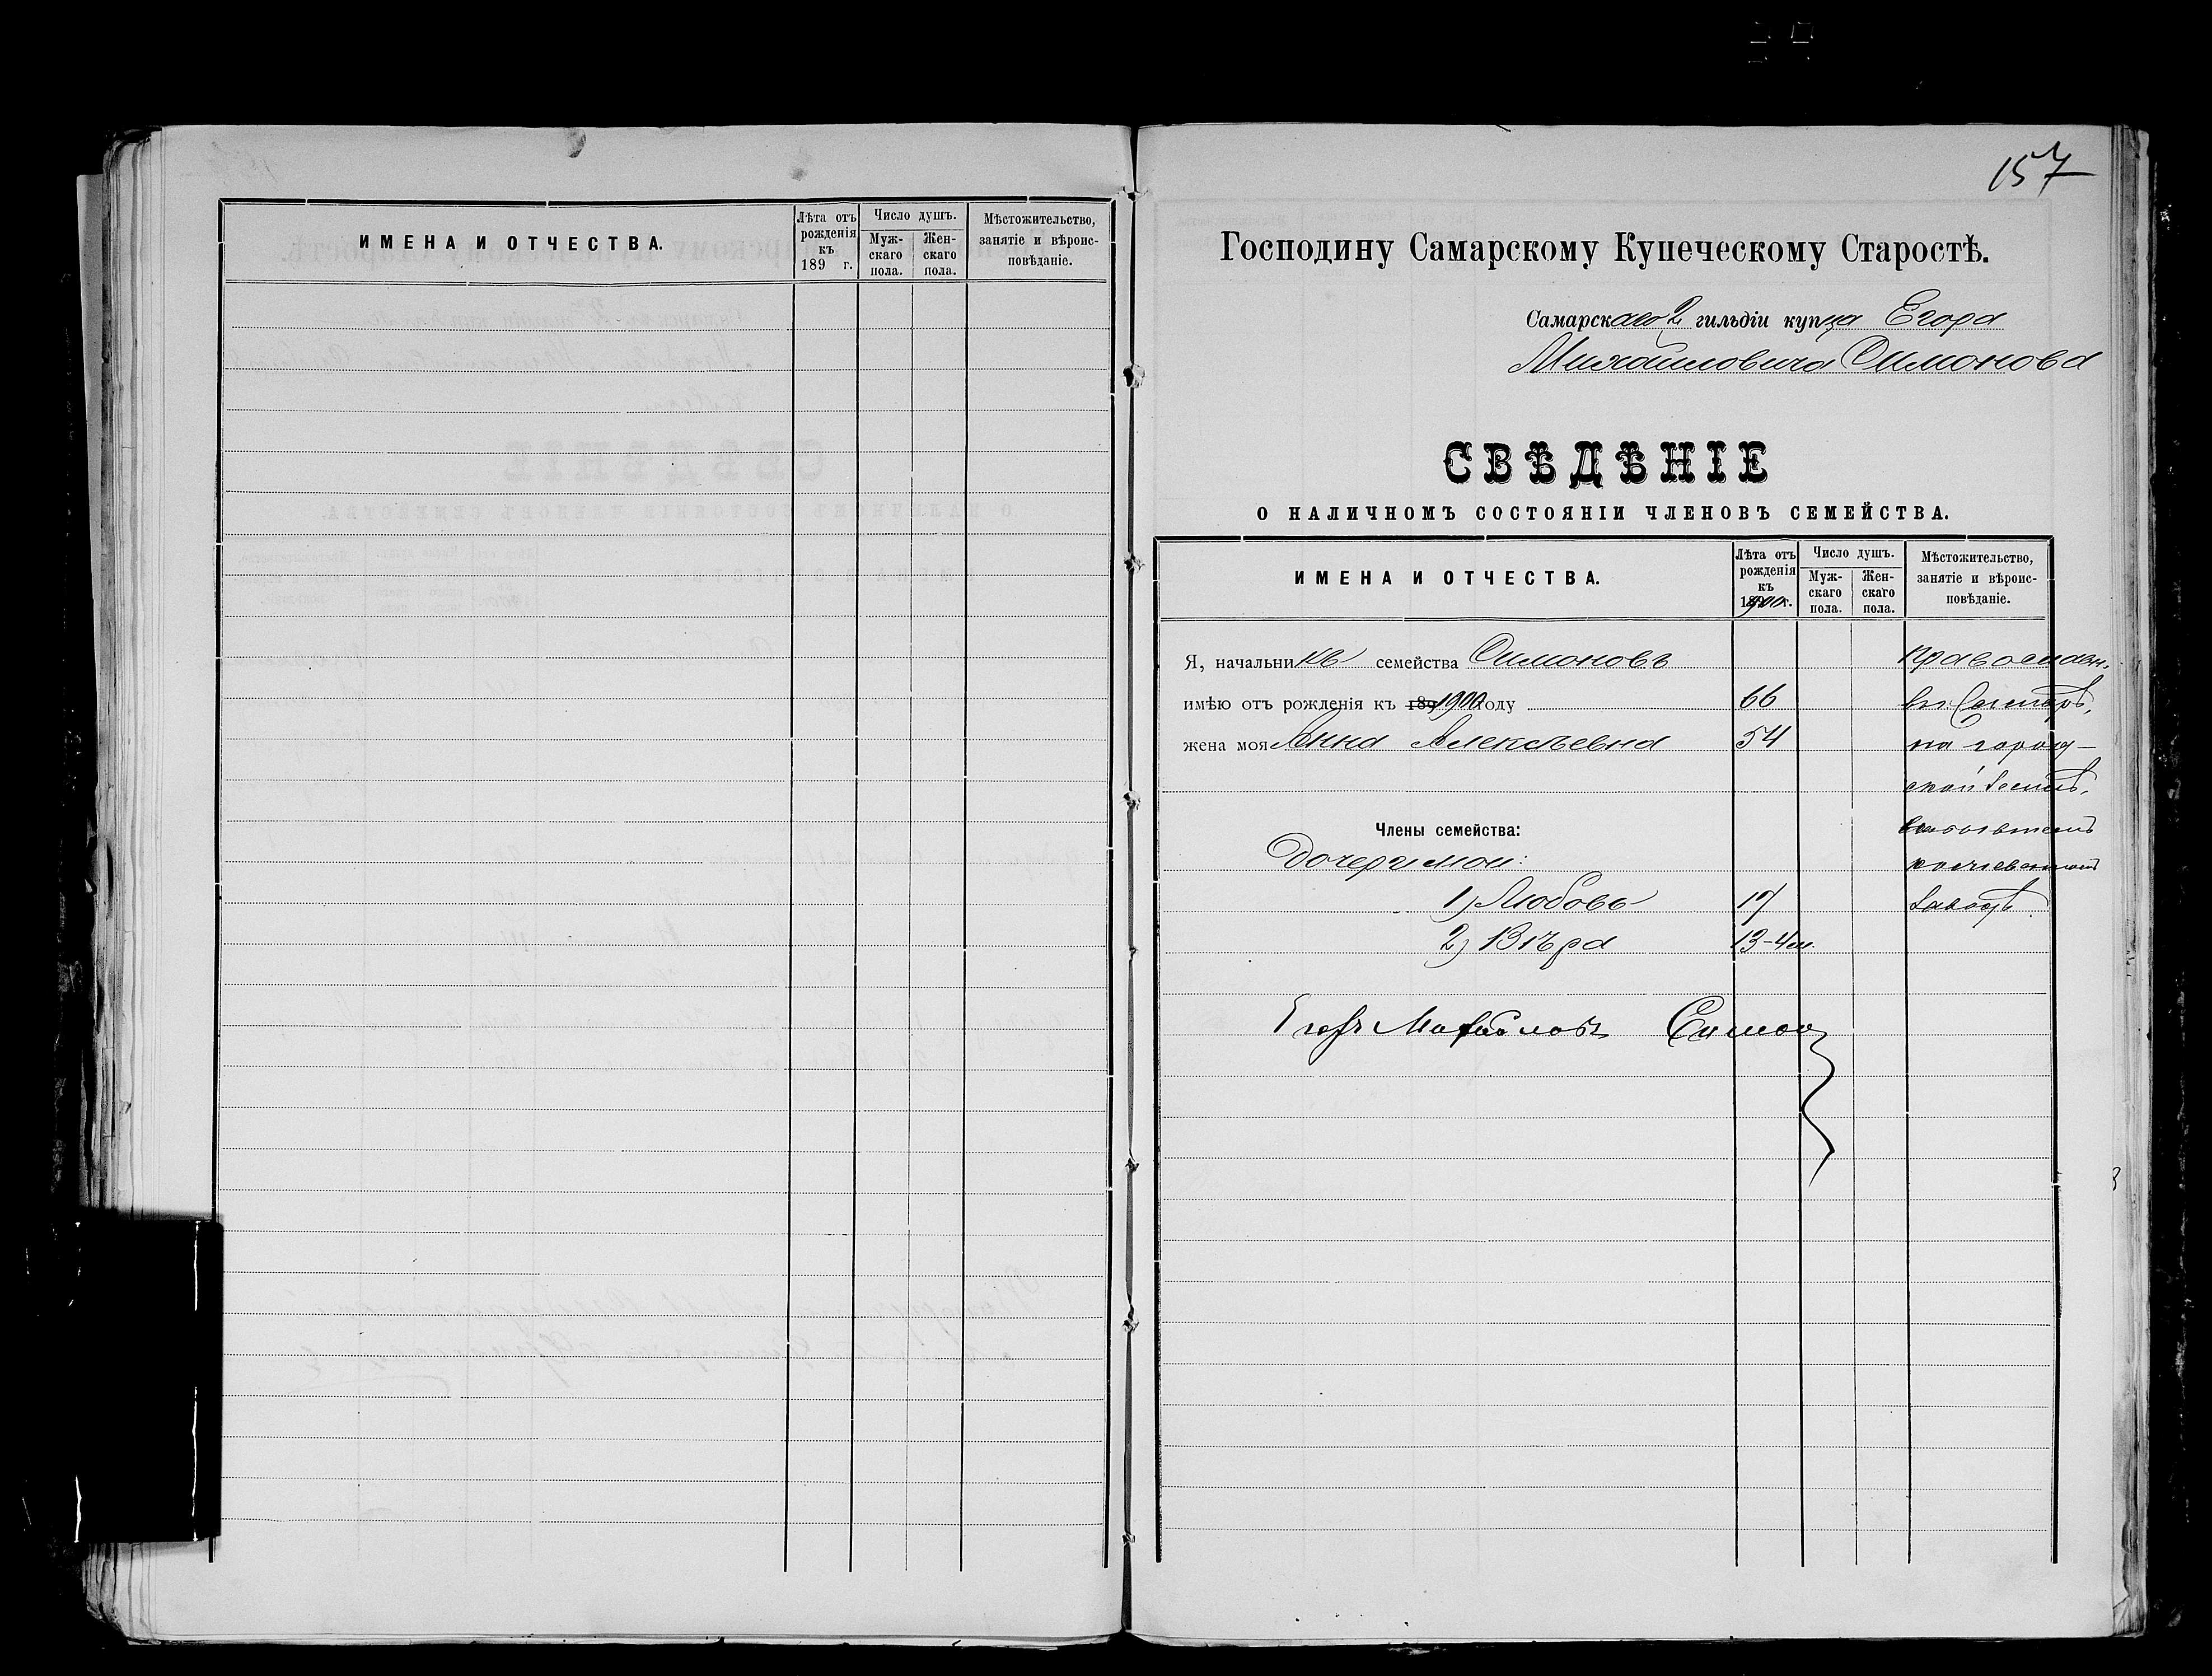 ИМЕНА И ОТЧЕСТВА.
Лѣта отъ рожденія къ 189 г.
Число душъ.
Муж-скаго пола.
Жен-скаго пола.
Мѣстожительство, занятіе и вѣроис-повѣданіе.
157
Господину Самарскому Купеческому Старостѣ.
Самарскаго 2 гильдіи купца Егора
Михайловича Симонова
СВѢДѢНІЕ
О НАЛИЧНОМЪ СОСТОЯНІИ ЧЛЕНОВЪ СЕМЕЙСТВА.
ИМЕНА И ОТЧЕСТВА.
Лѣта отъ рожденія къ 1900 г.
Число душъ.
Муж-скаго пола.
Жен-скаго пола.
Мѣстожительство, занятіе и вѣроис-повѣданіе.
Я, начальникъ семейства Симоновъ православн.
имѣю отъ рожденія къ 189 1900 году 66 въ Самарѣ,
жена моя Анна Алексѣевна 54 на город-
ской
Члены семейства:
Дочери мои:
1) Любовь 17 заводѣ
2) Вѣра 13-4 м.
Егоръ Михайловъ Симонов